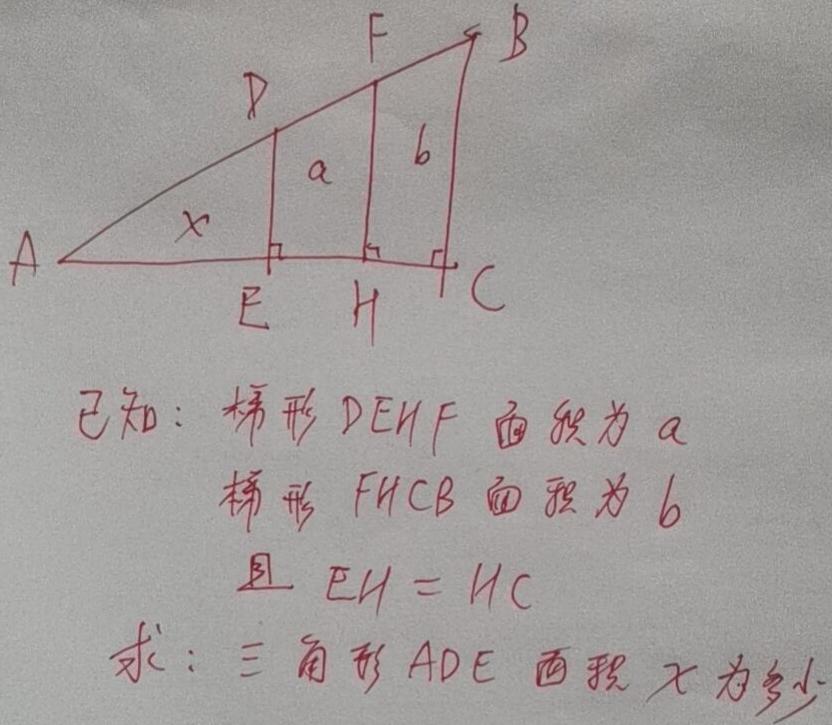 B
F
D
b
a
x
A
E
H
C
已知: 梯形 DEHF 面积为 a
梯形 FHCB 面积为 b
且 EH = HC
求: 三角形 ADE 面积 x 为多少